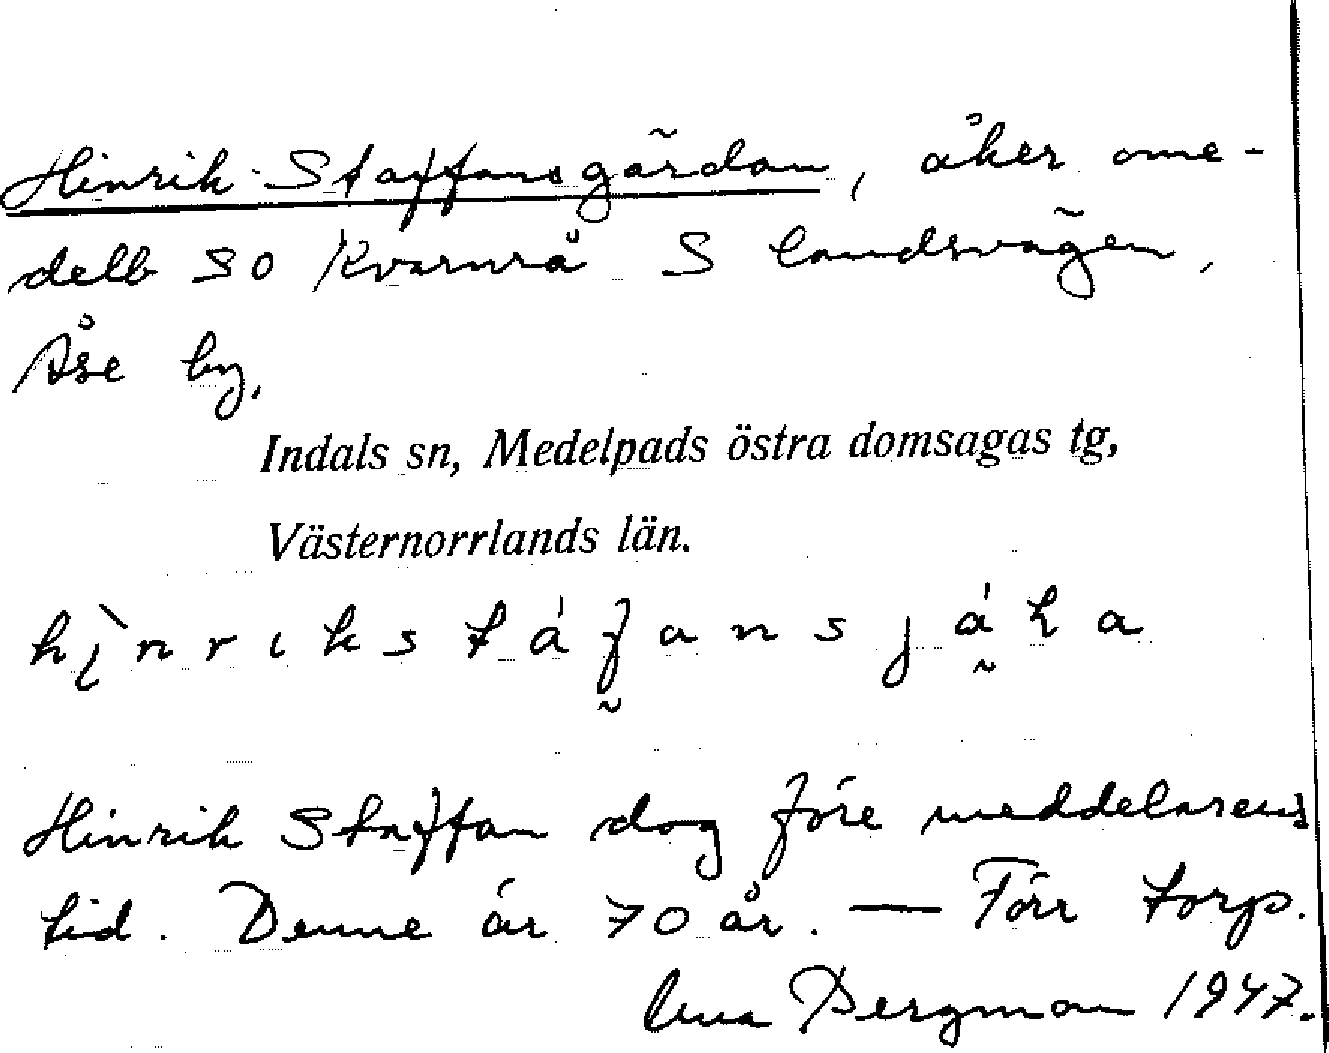 Hinrik-Staffansgärdan, åker ome-
delb SO Kvarnrå S landsvägen,
Åse by.
Indals sn, Medelpads östra domsagas tg,
Västernorrlands län.
Hinrik Staffan dog före meddelarens
tid. Denne är 70 år. — Förr torp.
Bergman 1947.